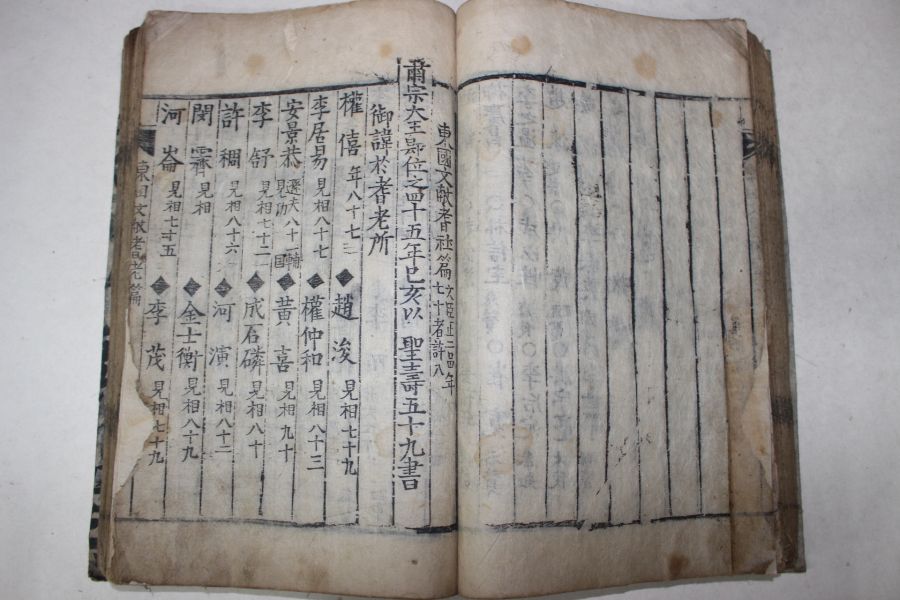 東國文獻耆社篇 文臣正二品年七十者許入
肅宗大王卽位之四十五年己亥以 聖壽五十九書
御諱於耆老所
權僖 年八十七 ◆趙浚 見相七十九
李居易 見相八十七 ◆權仲和 見相八十三
安景恭 八十一輔国 見功 ◆黃喜 見相九十
李舒 見相七十二 ◆成石磷 見相八十
許稠 見相八十六 ◆河演 見相八十二
閔霽 見相 ◆金士衡 見相八十九
河崙 見相七十五 ◆李茂 見相七十九
東国文獻耆老篇